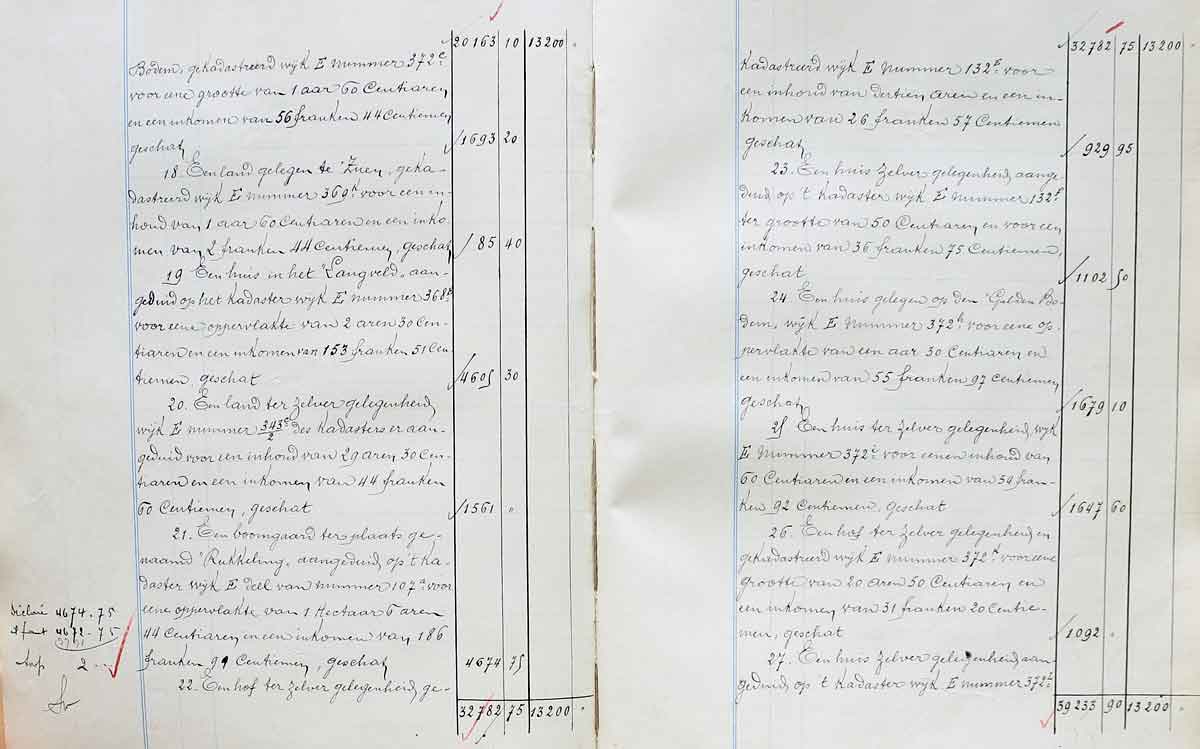 20163 10 13200 "
Bodem, gekadastreerd wijk E nummer 372e
voor eene grootte van 1 aar 60 Centiaren
en een inkomen van 56 franken 44 Centiemen
geschat 1693 20
18. Een land gelegen te "Zuen" geka-
dastreerd wijk E nummer 369 voor een in-
houd van 1 aar 60 Centiaren en een inko-
men van 2 franken 44 Centiemen, geschat 85 40
19 Een huis in het "Langveld" aan-
geduid op het Kadaster wijk E nummer 368
voor eene oppervlakte van 2 aren 30 Cen-
tiaren en een inkomen van 153 franken 51 Cen-
tiemen, geschat 4605 30
20. Een land ter zelver gelegenheid,
wijk E nummer 343c/2 des Kadasters er aan-
geduid voor een inhoud van 29 aren 30 Cen-
tiaren en een inkomen van 44 franken
60 Centiemen, geschat 1561 "
21. Een boomgaard ter plaats ge-
naamd "Rukkeling" aangeduid op 't Ka-
daster wijk E deel van nummer 107a voor
eene oppervlakte van 1 Hectaar 6 aren
44 Centiaren en een inkomen van 186
franken 99 Centiemen, geschat 4674 75
22. Een hof ter zelver gelegenheid ge-
32782 75 13200 "
4674.75
4672.75
2
32782 75 13200 "
Kadastreerd wijk E nummer 132e voor
een inhoud van dertien aren en een in-
komen van 26 franken 57 Centiemen
geschat 929 95
23. Een huis zelver gelegenheid, aange-
duid op 't Kadaster wijk E nummer 132f
ter grootte van 50 Centiaren en voor een
inkomen van 36 franken 75 Centiemen,
geschat 1102 50
24. Een huis gelegen op den "Gulden Bo-
dem", wijk E nummer 372h voor eene op-
pervlakte van een aar 30 Centiaren en
een inkomen van 55 franken 97 Centiemen
geschat 1679 10
25 Een huis ter zelver gelegenheid, wijk
E nummer 372i voor eenen inhoud van
60 Centiaren en een inkomen van 54 fran-
ken 92 Centiemen, geschat 1647 60
26. Een hof ter zelver gelegenheid en
gekadastreerd wijk E nummer 372k voor eene
grootte van 20 aren 50 Centiaren en
een inkomen van 31 franken 20 Centie-
men, geschat 1092 "
27. Een huis zelver gelegenheid, aan-
geduid op 't Kadaster wijk E nummer 372l
39233 90 13200 "